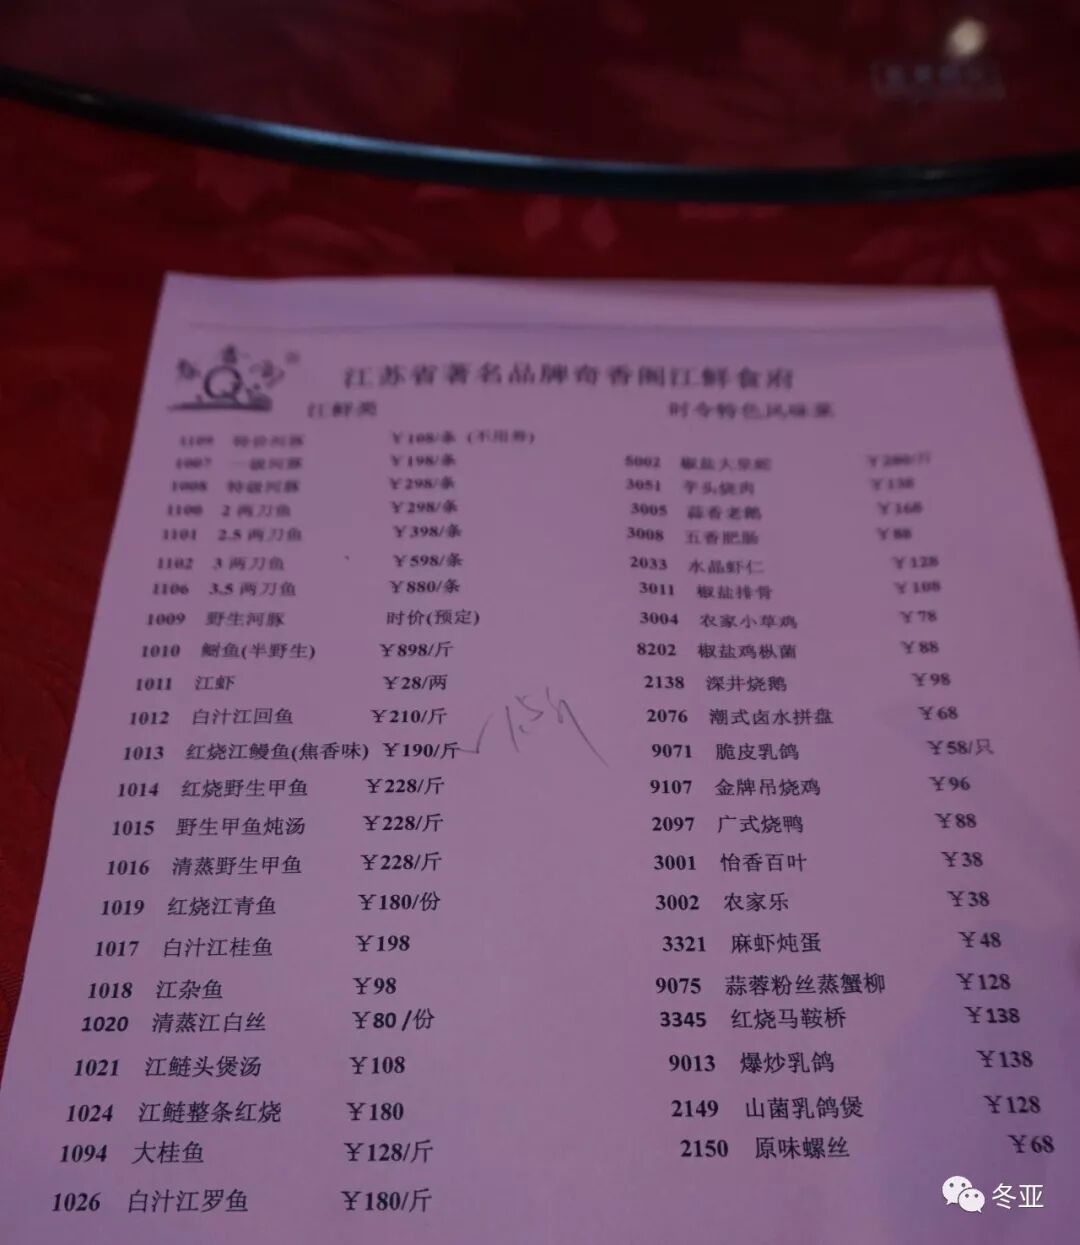 江苏省著名品牌奇香阁江鲜食府
江鲜类
1109 特价河豚 ￥108/条 (不用券)
1007 一级河豚 ￥198/条
1008 特级河豚 ￥298/条
1100 2两刀鱼 ￥298/条
1101 2.5两刀鱼 ￥398/条
1102 3两刀鱼 ￥598/条
1106 3.5两刀鱼 ￥880/条
1009 野生河豚 时价(预定)
1010 鮰鱼(半野生) ￥898/斤
1011 江虾 ￥28/两
1012 白汁江回鱼 ￥210/斤
1013 红烧江鳗鱼(焦香味) ￥190/斤
1014 红烧野生甲鱼 ￥228/斤
1015 野生甲鱼炖汤 ￥228/斤
1016 清蒸野生甲鱼 ￥228/斤
1019 红烧江青鱼 ￥180/份
1017 白汁江桂鱼 ￥198
1018 江杂鱼 ￥98
1020 清蒸江白丝 ￥80 /份
1021 江鲢头煲汤 ￥108
1024 江鲢整条红烧 ￥180
1094 大桂鱼 ￥128/斤
1026 白汁江罗鱼 ￥180/斤
时令特色风味菜
5002 椒盐大王蛇 ￥280/斤
3051 芋头烧肉 ￥138
3005 蒜香老鹅 ￥168
3008 五香肥肠 ￥88
2033 水晶虾仁 ￥128
3011 椒盐排骨 ￥108
3004 农家小草鸡 ￥78
8202 椒盐鸡枞菌 ￥88
2138 深井烧鹅 ￥98
2076 潮式卤水拼盘 ￥68
9071 脆皮乳鸽 ￥58/只
9107 金牌吊烧鸡 ￥96
2097 广式烧鸭 ￥88
3001 怡香百叶 ￥38
3002 农家乐 ￥38
3321 麻虾炖蛋 ￥48
9075 蒜蓉粉丝蒸蟹柳 ￥128
3345 红烧马鞍桥 ￥138
9013 爆炒乳鸽 ￥138
2149 山菌乳鸽煲 ￥128
2150 原味螺丝 ￥68
冬亚